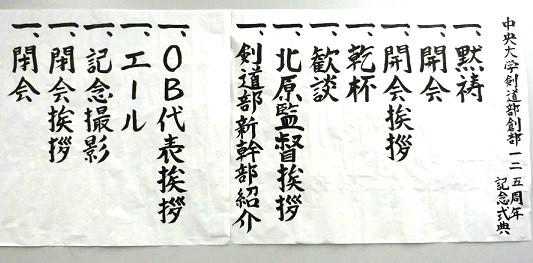 中央大学剣道部創部一二五周年
記念式典
一、黙祷
一、開会
一、開会挨拶
一、乾杯
一、歓談
一、北原監督挨拶
一、剣道部新幹部紹介
一、OB代表挨拶
一、エール
一、記念撮影
一、閉会挨拶
一、閉会